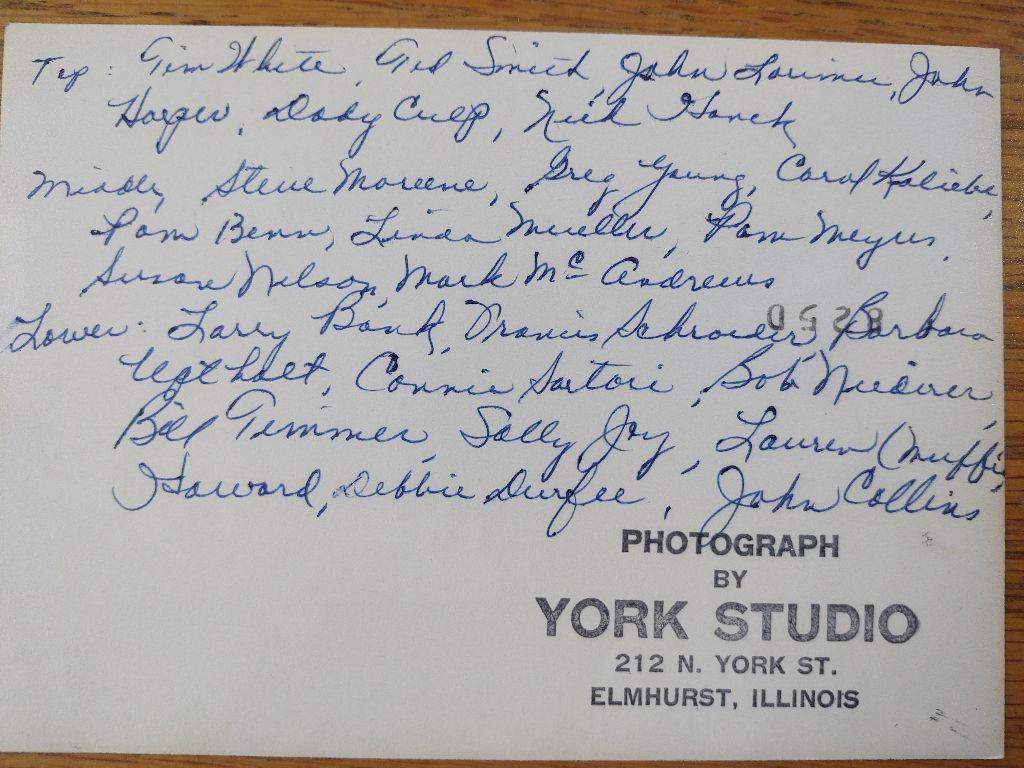 Top: Tim White, Ted Smith, John Lorimer, John
Harper, Dody Culp, Nick Hanck
Middle, Steve Moreene, Greg Young, Carol Koliebe,
Pam Benn, Linda Mueller, Pam Meyers,
Susan Nelson, Mark Mc Andrews
Lower: Larry Bank, Francis Schroeder, Barbara
Connie Sartori, Bob
Bill Timmer, Sally Joy, Lauren (Muffi)
Howard, Debbie Durfee, John Collins
PHOTOGRAPH
BY
YORK STUDIO
212 N. YORK ST.
ELMHURST, ILLINOIS